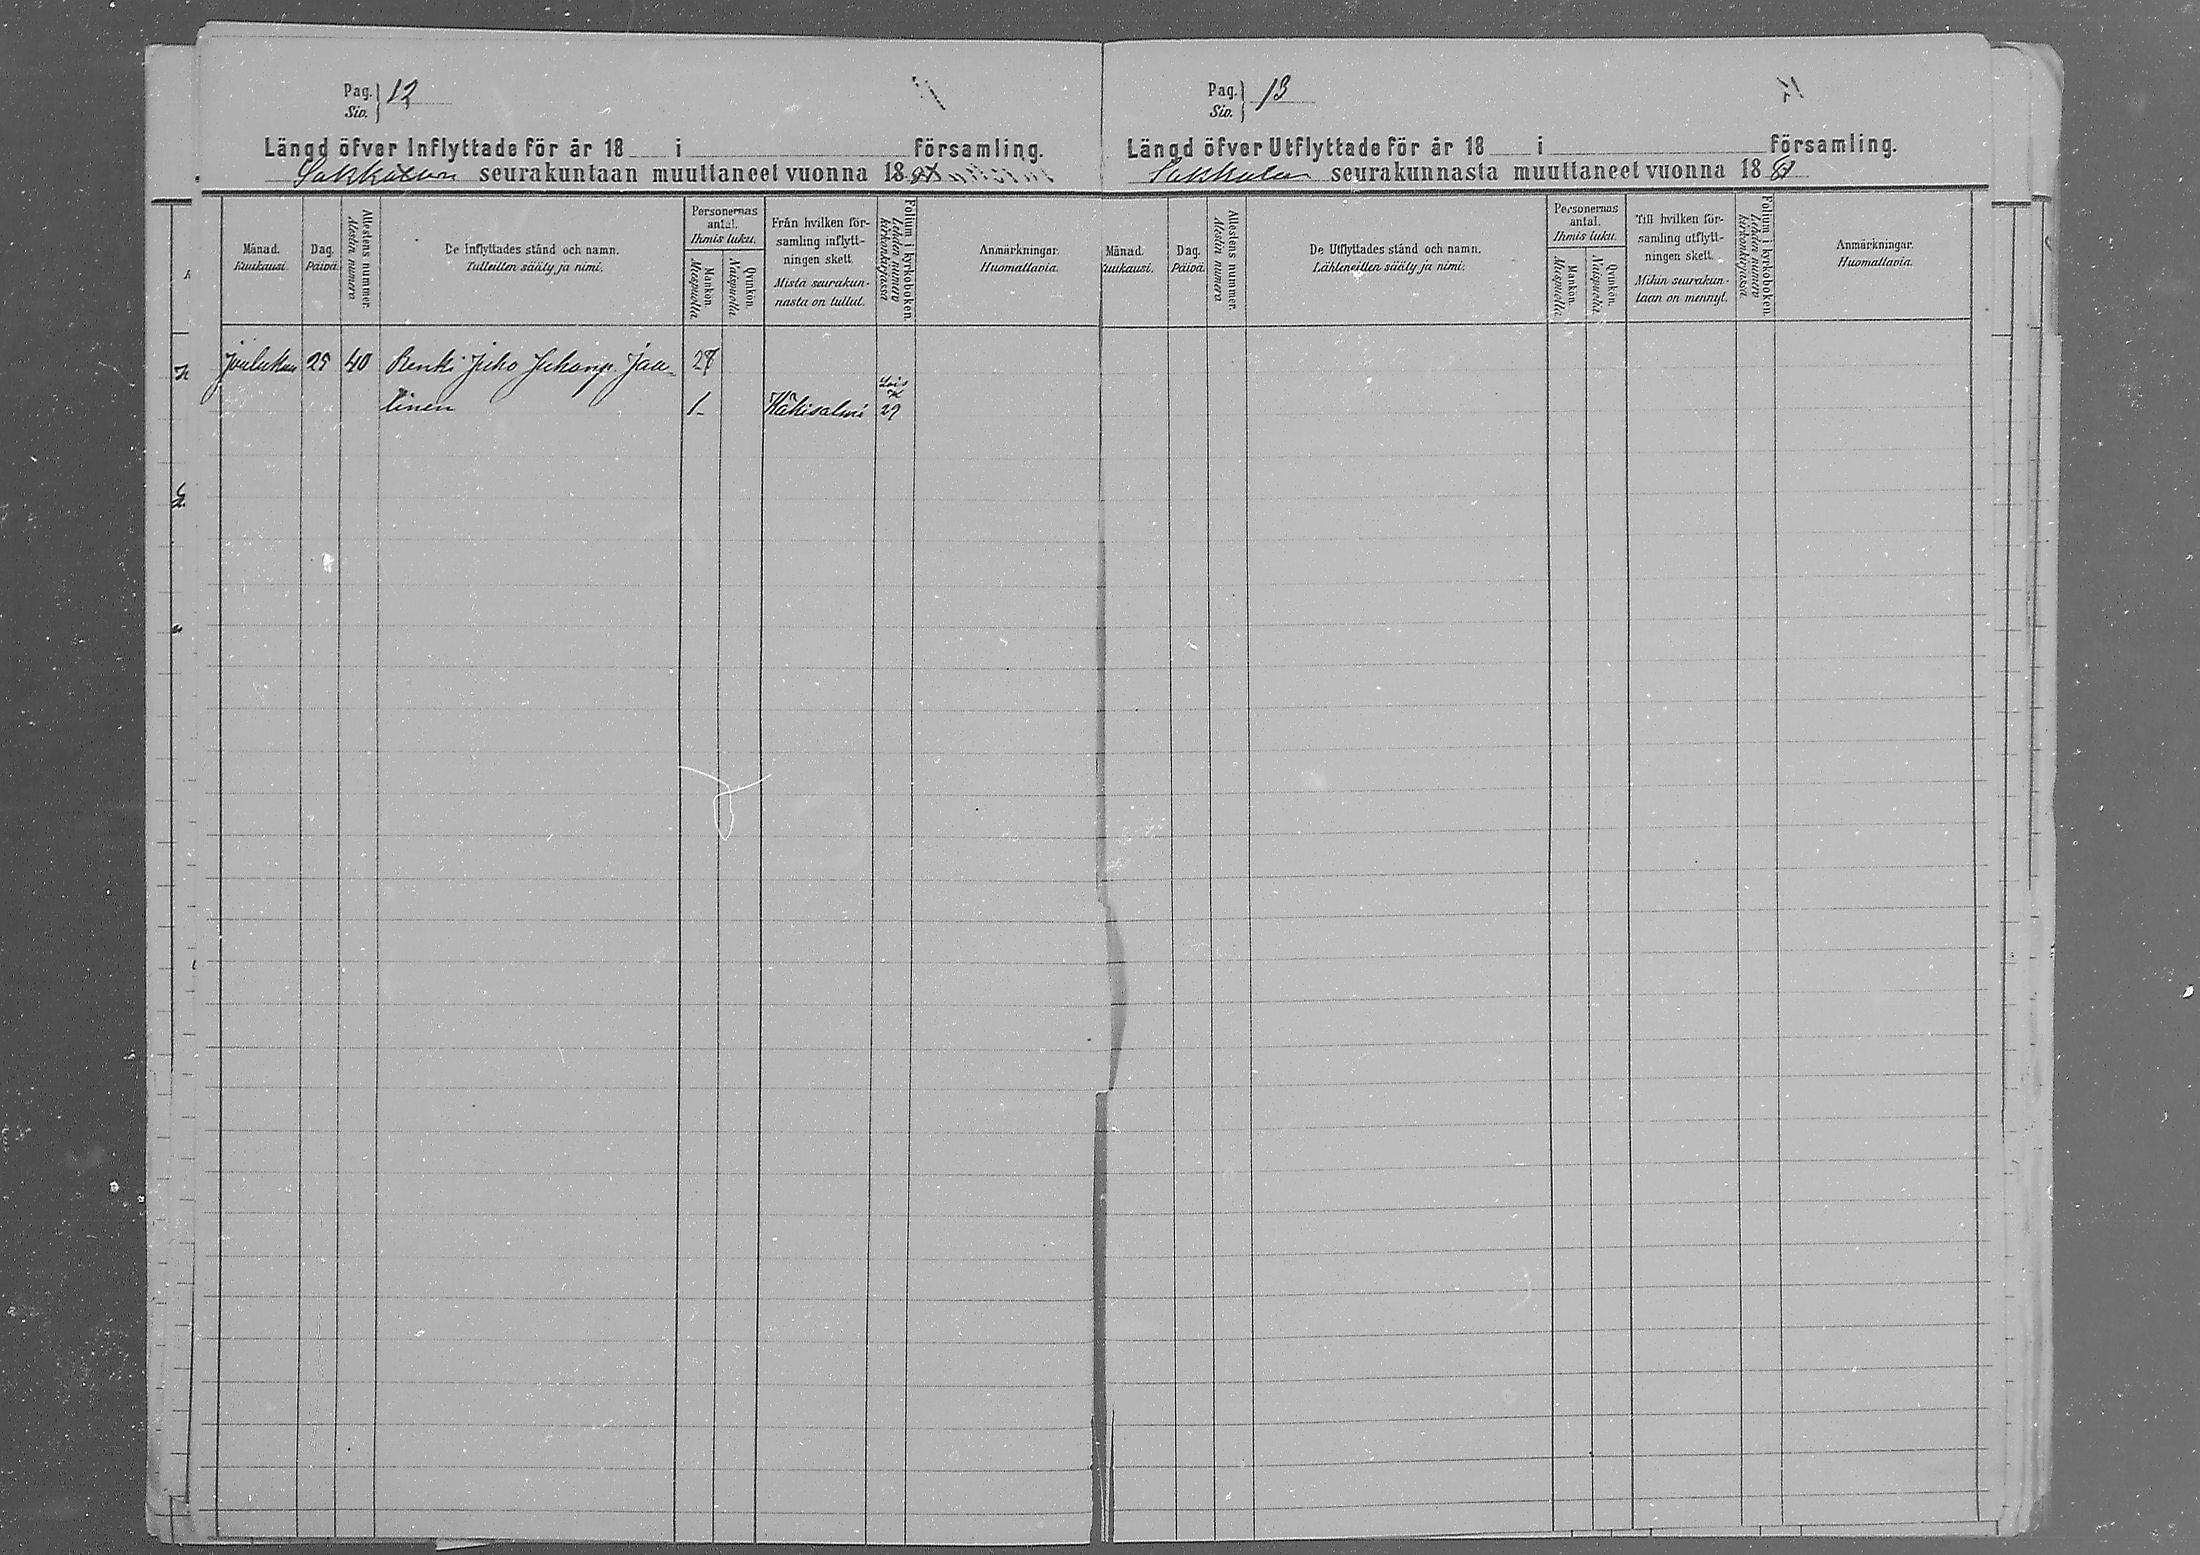 Pag. 12
Siv.
Längd öfver Inflyttade för år 18 i församling.
Sakkolan seurakuntaan muuttaneet vuonna 18
Månad. Kuukausi.
Dag. Päivä.
Attestens nummer. Attestin numero
De Inflyttades stånd och namn. Tulleitten sääty ja nimi.
Personernas antal. Ihmis luku.
Mankön. Miespuolia
Qvinkön. Naispuolia
Från hvilken församling inflyttningen skett. Mistä seurakunnasta on tullut.
Folium i kyrkoboken. Lehden numero kirkonkirjassa
Anmärkningar. Huomattavia.
Joulukuu 29 40 Renki Juho Juhonp. Jaa- 27
linen 1 Käkisalmi 29
Pag. 13
Siv.
Längd öfver Utflyttade för år 18 i församling.
Sakkulan seurakunnasta muuttaneet vuonna 18
Månad. Kuukausi.
Dag. Päivä.
Attestens nummer. Attestin numero
De Utflyttades stånd och namn. Lähteneitten sääty ja nimi.
Personernas antal. Ihmis luku.
Mankön. Miespuolia
Qvinkön. Naispuolia
Till hvilken församling utflyttningen skett. Mihin seurakuntaan on mennyt.
Folium i kyrkoboken. Lehden numero kirkonkirjassa
Anmärkningar. Huomattavia.